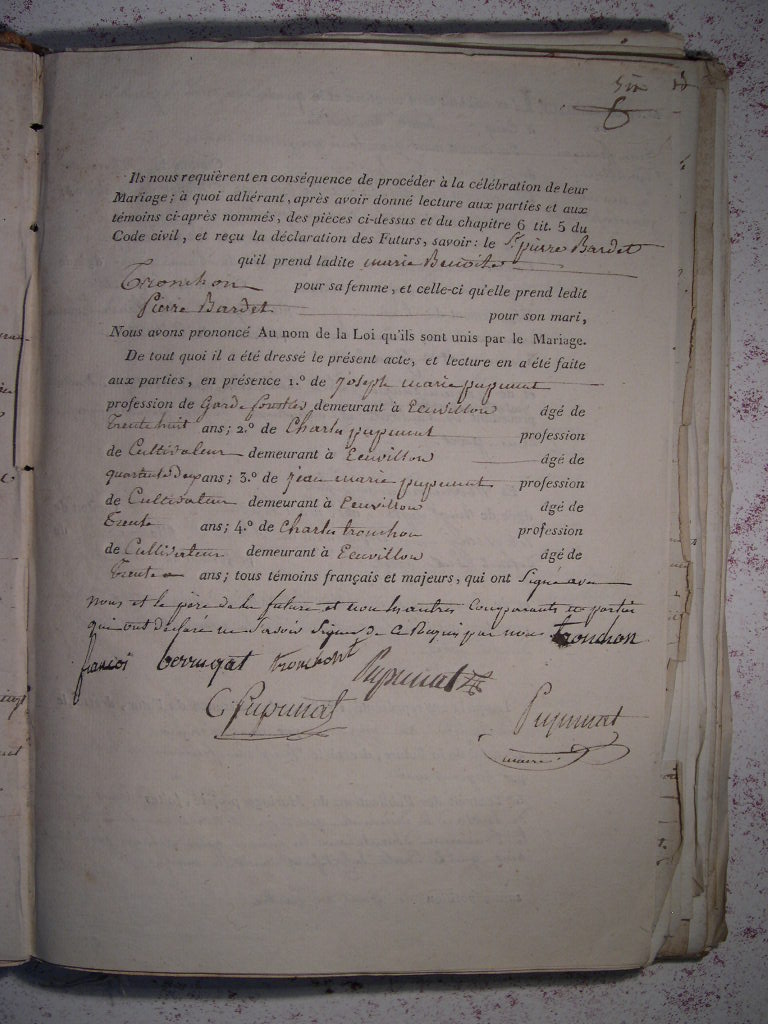 Six
6
Ils nous requièrent en conséquence de procéder à la célébration de leur
Mariage; à quoi adhérant, après avoir donné lecture aux parties et aux
témoins ci-après nommés, des pièces ci-dessus et du chapitre 6 tit. 5 du
Code civil, et reçu la déclaration des Futurs, savoir: le Sr. pierre Bardet
qu'il prend ladite marie Benoite
Tronchon pour sa femme, et celle-ci qu'elle prend ledit
Pierre Bardet pour son mari,
Nous avons prononcé Au nom de la Loi qu'ils sont unis par le Mariage.
De tout quoi il a été dressé le présent acte, et lecture en a été faite
aux parties, en présence 1.º de joseph marie pupunat
profession de Garde forestier demeurant à Ecuvillon âgé de
Trente huit ans; 2.º de Charles pupunat profession
de Cultivateur demeurant à Ecuvillon âgé de
quarante deux ans; 3.º de jean marie pupunat profession
de Cultivateur demeurant à Ecuvillon âgé de
Trente ans; 4.º de Charles tronchon profession
de Cultivateur demeurant à Ecuvillon âgé de
Trente ans; tous témoins français et majeurs, qui ont Signé avec
nous et le père de la future et non les autres Comparants et parties
qui ont déclaré ne Savoir Signer de Ce Requis par nous tronchon
francoi berrugat tronchont Pupunat
C Pupunat
Pupunat
maire